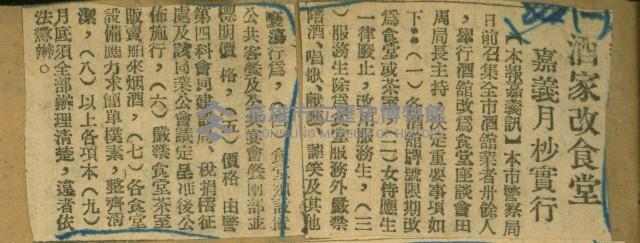 酒家改食堂
嘉義月杪實行
【本報嘉義訊】本市警察局
日前召集全市酒館業者卅餘人
，舉行酒館改爲食堂座談會由
周局長主持 決定重要事項如
下：（一）各酒館牌號限期改
爲食堂或茶 （二）女侍應生
一律廢止，改 服務生，（三
）服務生除爲 服務外嚴禁
陪酒、唱歌、獻 謝笑及其他
行爲，（四）食堂
公共客餐及公 會餐兩部並
標明價 格，（五）價格 由警
第四科會同建設局 稅捐稽征
處及該同業公會議定呈准後公
佈施行，（六）嚴禁食堂茶室
販賣船來烟酒，（七）各食堂
設備應力求簡單樸素，整齊淸
潔，（八）以上各項本（九）
月底須全部辦理淸楚，違者依
法懲辦。
高雄市立歷史博物館
KAOHSIUNG MUSEUM OF HISTORY